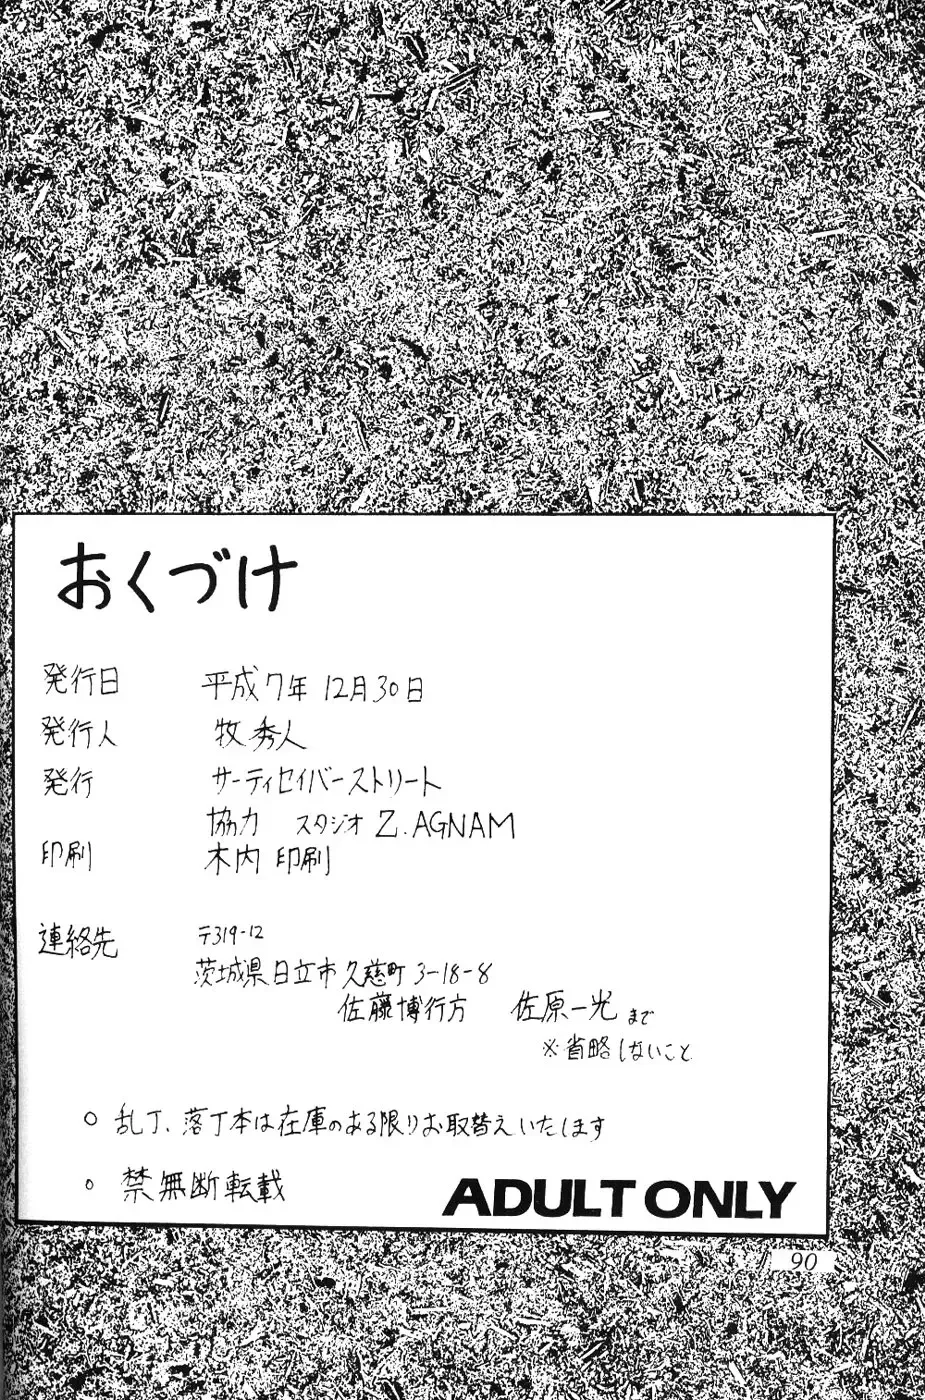 おくづけ
発行日 平成7年12月30日
発行人 牧秀人
発行 サーティセイバーストリート
協力 スタジオ Z.AGNAM
印刷 木内印刷
連絡先 〒319-12
茨城県日立市久慈町3-18-8
佐藤博行方 佐原一光まで
※省略しないこと
○ 乱丁、落丁本は在庫のある限りお取替えいたします
○ 禁無断転載
ADULT ONLY
90